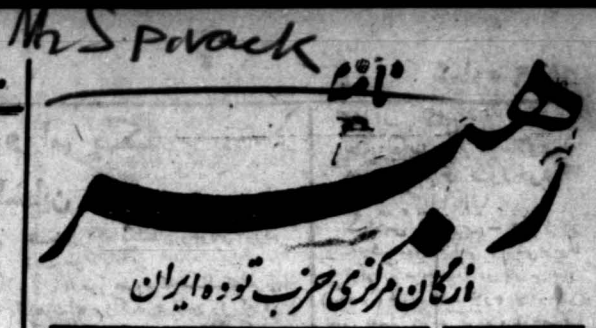 Mr Spivack
رهبر
ارگان مرکزی حزب توده ایران